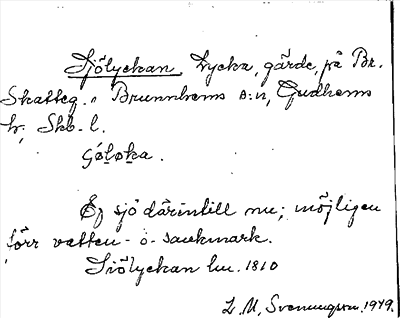 Sjölyckan Lycka, gärde, på Br.
Skatteg. i Brunnhems s:n, Gudhems
h; Skb. l.
Ej sjö därintill nu; möjligen
förr vatten- o. sankmark.
Siölyckan lm. 1810
L. M. Svenungson. 1949.